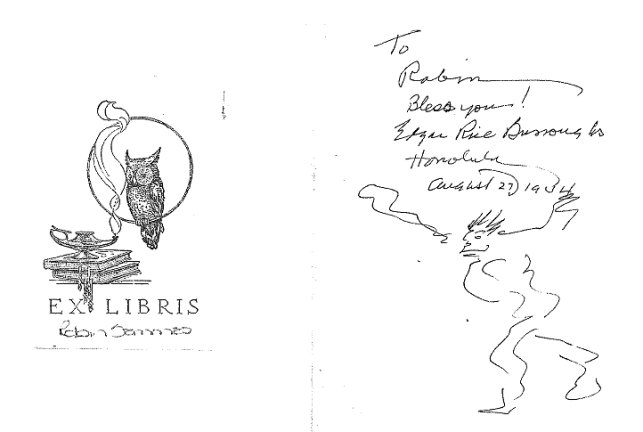 EX LIBRIS
Robin
To
Robin
Bless you!
Edgar Rice Burroughs
Honolulu
August 27